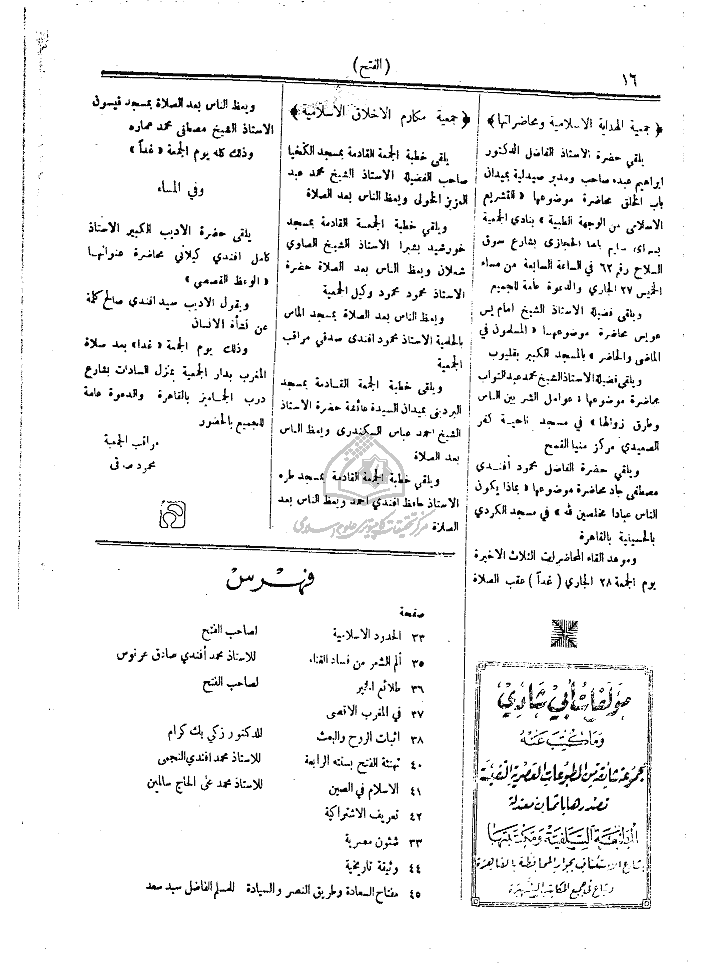 ١٦
(الفتح)
﴿ جمعية الهداية الاسلامية ومحاضراتها ﴾
يلقي حضرة الاستاذ الفاضل الدكتور
ابراهيم عبده صاحب ومدير صيدلية بميدان
باب الخلق محاضرة موضوعها « التشريع
الاسلامى من الوجهة الطبية » بنادي الجمعية
بسراى سليم باشا الحجازى بشارع سوق
السلاح رقم ٦٢ في الساعة السابعة من مساء
الخميس ٢٧ الجاري والدعوة عامة للجميع
ويلقى فضيلة الاستاذ الشيخ امام يس
عويس محاضرة موضوعها « المسلمون في
الماضى والحاضر » بالمسجد الكبير بقليوب
ويلقى فضيلة الاستاذ الشيخ محمد عبد التواب
محاضرة موضوعها « عوامل الشر بين الناس
وطرق زوالها » في مسجد ناحية كفر
الصعيدي مركز منيا القمح
ويلقي حضرة الفاضل محمود افندي
مصطفى جاد محاضرة موضوعها « بماذا يكون
الناس عبادا مخلصين لله » في مسجد الكردي
بالحسينية بالقاهرة
وموعد القاء المحاضرات الثلاث الاخيرة
يوم الجمعة ٢٨ الجاري ( غداً ) عقب الصلاة
مؤلفات أبي شادي
وما كتب عنه
مجموعة شائقة من المطبوعات العصرية النفيسة
تصدرها باثمان معتدلة
المطبعة السلفية ومكتبتها
بشارع الاستئناف بجوار المحافظة بالقاهرة
وتباع في جميع المكاتب الشهيرة
﴿ جمعية مكارم الاخلاق الاسلامية ﴾
يلقي خطبة الجمعة القادمة بمسجد الكخيا
صاحب الفضيلة الاستاذ الشيخ محمد عبد
العزيز الخولى ويعظ الناس بعد الصلاة
ويلقي خطبة الجمعة القادمة بمسجد
خورشيد بشبرا الاستاذ الشيخ الصاوي
شعلان ويعظ الناس بعد الصلاة حضرة
الاستاذ محمود محمود وكيل الجمعية
ويعظ الناس بعد الصلاة بمسجد الماس
بالحلمية الاستاذ محمود افندى صدقي مراقب
الجمعية
ويلقي خطبة الجمعة القادمة بمسجد
البرديني بميدان السيدة عائشة حضرة الاستاذ
الشيخ احمد عباس السكندرى ويعظ الناس
بعد الصلاة
ويلقي خطبة الجمعة القادمة بمسجد طره
الاستاذ حافظ افندي احمد ويعظ الناس بعد
الصلاة
ويعظ الناس بعد الصلاة بمسجد قيسون
الاستاذ الشيخ مصطفى محمد عماره
وذلك كله يوم الجمعة « غداً »
وفي المساء
يلقى حضرة الاديب الكبير الاستاذ
كامل افندي كيلاني محاضرة عنوانها
« الوعظ القصصى »
ويقول الاديب سيد افندي صالح كلمة
عن نشأة الانسان
وذلك يوم الجمعة « غدا » بعد صلاة
المغرب بدار الجمعية بمنزل السادات بشارع
درب الجماميز بالقاهرة والدعوة عامة
للجميع بالحضور
مراقب الجمعية
محمود صدقى
فهرس
صفحة
٣٣ الحدود الاسلامية لصاحب الفتح
٣٥ ألم الشعر من فساد الغناء للاستاذ محمد أفندي صادق عرنوس
٣٦ طلائع الخير لصاحب الفتح
٣٧ في المغرب الاقصى
٣٨ اثبات الروح والبعث للدكتور زكي بك كرام
٤٠ تهنئة الفتح بسنته الرابعة للاستاذ محمد افندي النجمى
٤١ الاسلام في الصين للاستاذ محمد على الحاج سالمين
٤٢ تعريف الاشتراكية
٣٣ شئون مصرية
٤٤ وثيقة تاريخية
٤٥ مفتاح السعادة وطريق النصر والسيادة للمسلم الفاضل سيد سعد
مركز تحقيقات كامپيوترى علوم اسلامى